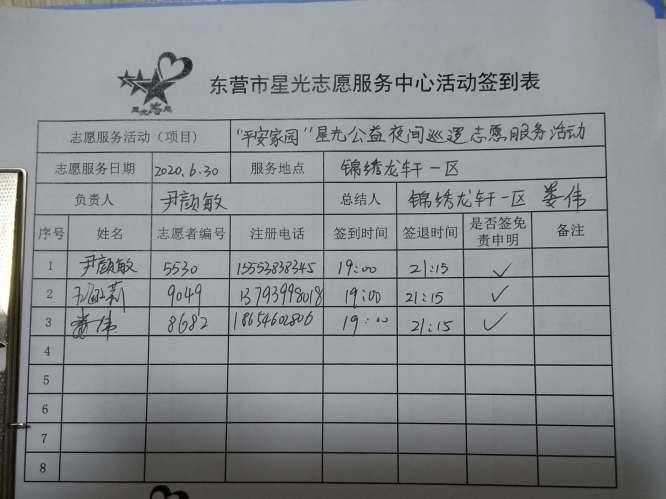 东营市星光志愿服务中心活动签到表
志愿服务活动（项目） "平安家园"星光公益夜间巡逻志愿服务活动
志愿服务日期 2020.6.30 服务地点 锦绣龙轩一区
负责人 尹颜敏 总结人 锦绣龙轩一区 娄伟
序号 姓名 志愿者编号 注册电话 签到时间 签退时间 是否签免责申明 备注
1 尹颜敏 5530 15553838345 19:00 21:15 ✓
2 9049 13793998018 19:00 21:15 ✓
3 娄伟 8682 18654602806 19:00 21:15 ✓
4
5
6
7
8